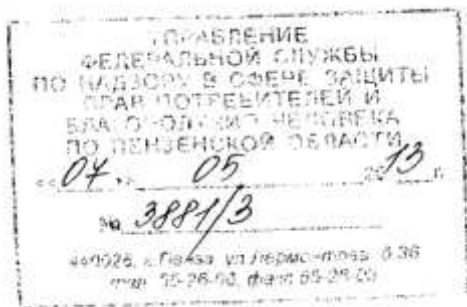 УПРАВЛЕНИЕ
ФЕДЕРАЛЬНОЙ СЛУЖБЫ
ПО НАДЗОРУ В СФЕРЕ ЗАЩИТЫ
ПРАВ ПОТРЕБИТЕЛЕЙ И
БЛАГОПОЛУЧИЯ ЧЕЛОВЕКА
ПО ПЕНЗЕНСКОЙ ОБЛАСТИ
«07» 05 2013 г.
№ 3881/3
г. Пенза, ул. Лермонтова, 36